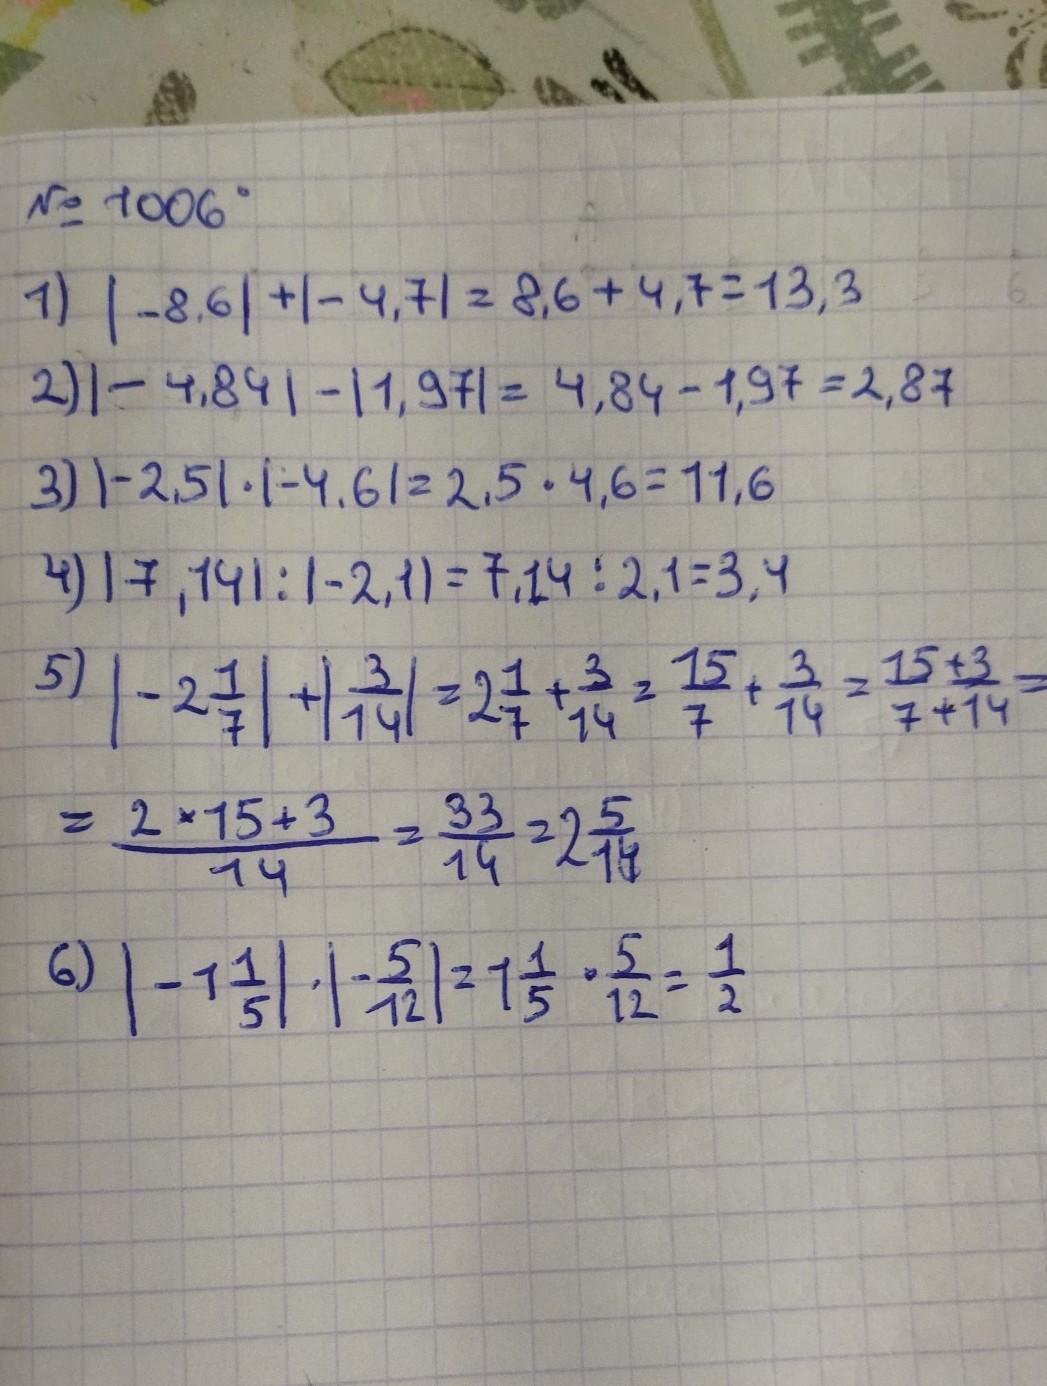 № 1006°
1) |-8,6| + |-4,7| = 8,6 + 4,7 = 13,3
2) |-4,84| - |1,97| = 4,84 - 1,97 = 2,87
3) |-2,5| · |-4,6| = 2,5 · 4,6 = 11,6
4) |7,14| : |-2,1| = 7,14 : 2,1 = 3,4
5) |-2 1/7| + |3/14| = 2 1/7 + 3/14 = 15/7 + 3/14 = (15+3)/(7+14) =
= (2×15+3)/14 = 33/14 = 2 5/14
6) |-1 1/5| · |-5/12| = 1 1/5 · 5/12 = 1/2